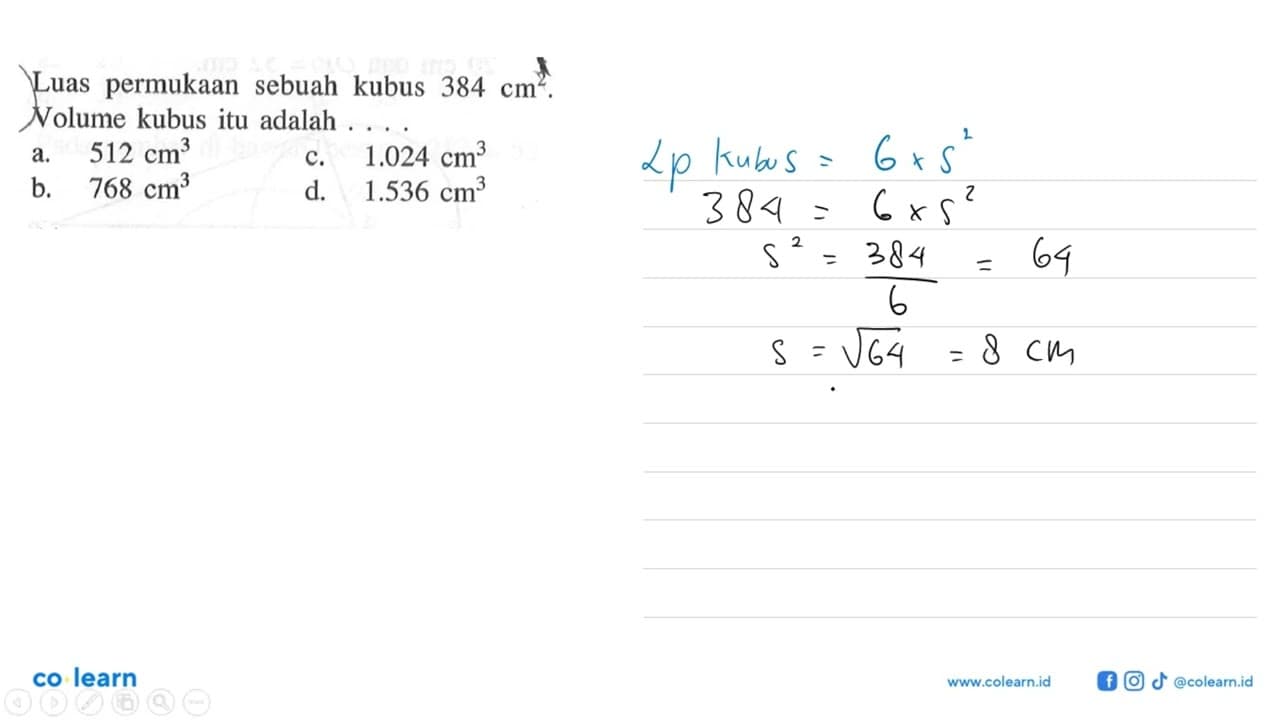 Luas permukaan sebuah kubus 384 cm².
Volume kubus itu adalah . . . .
a. 512 cm³ c. 1.024 cm³
b. 768 cm³ d. 1.536 cm³
Lp kubus = 6 x s²
384 = 6 x s²
s² = 384/6 = 64
s = √64 = 8 cm
co learn
www.colearn.id @colearn.id